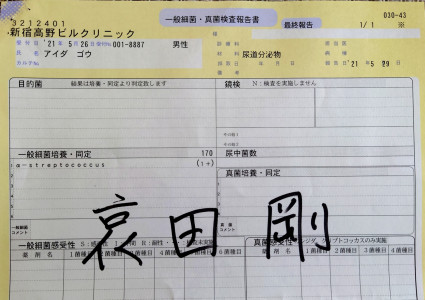 030-43
3212401 一般細菌・真菌検査報告書 最終報告 1/1 ※
新宿高野ビルクリニック
'21年5月26日 001-8887 男性
氏名 アイダ ゴウ 材料 尿道分泌物
カルテNo. '21年5月29日
目的菌 結果は培養・同定より判定致します 鏡検 N:検査を実施しません
一般細菌培養・同定 170 尿中菌数
1 α-streptococcus (1+)
真菌培養・同定
一般細菌
コメント
真菌
コメント
哀田 剛
一般細菌感受性
真菌感受性
薬剤名 1菌種目 2菌種目 3菌種目